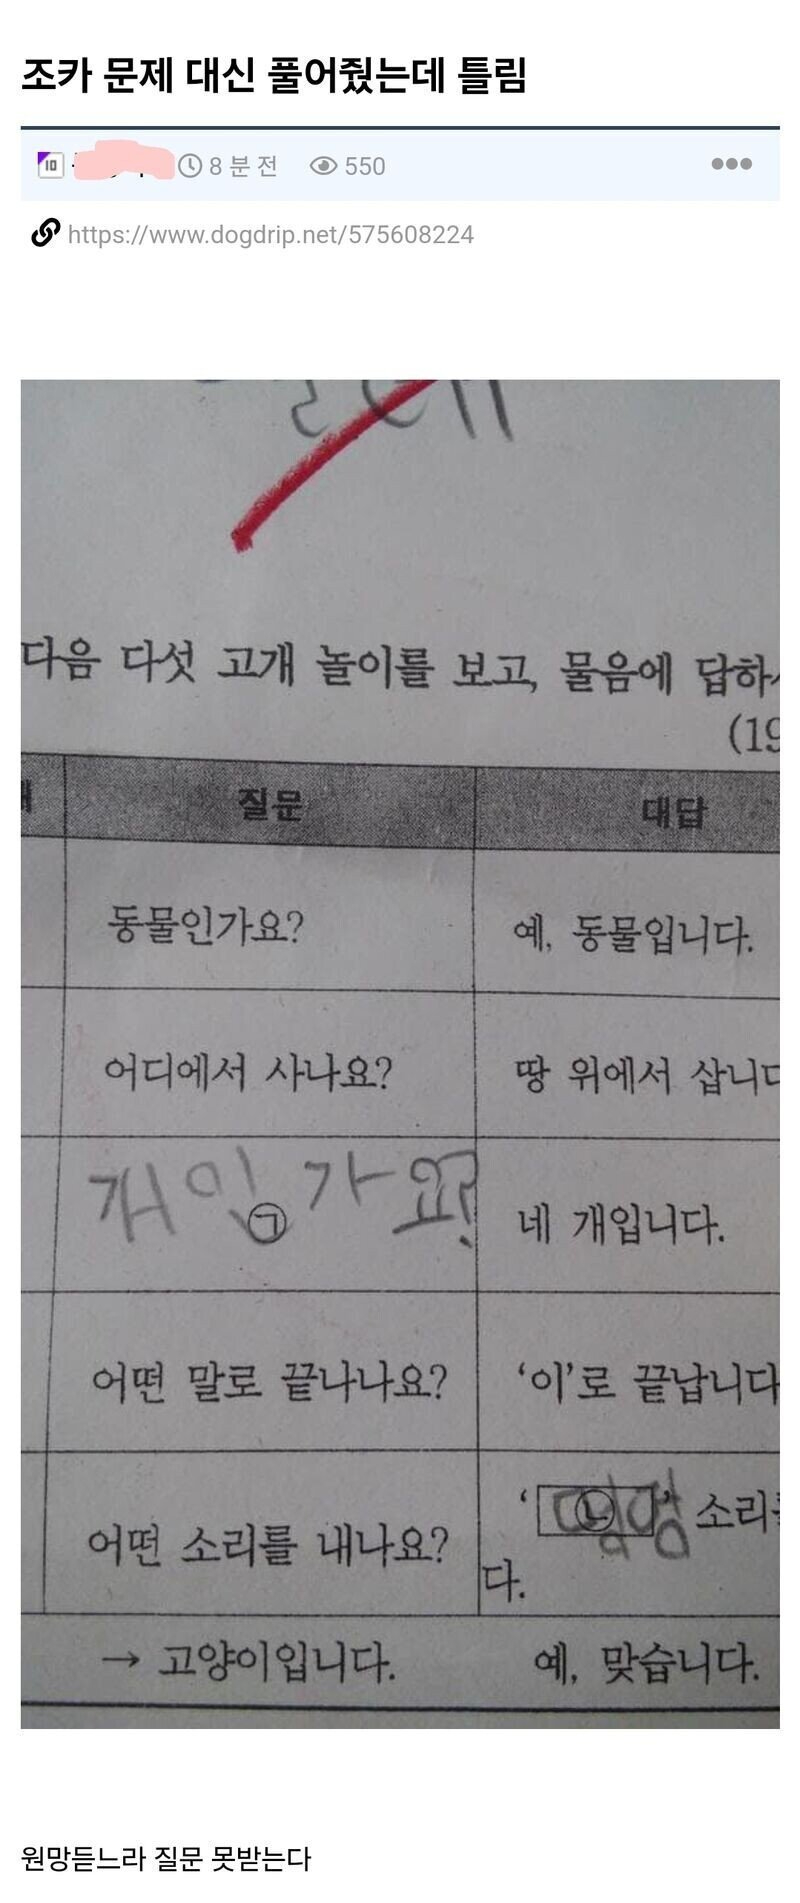 조카 문제 대신 풀어줬는데 틀림
8 분 전 550
https://www.dogdrip.net/575608224
다음 다섯 고개 놀이를 보고, 물음에 답하
(19
질문 대답
동물인가요? 예, 동물입니다.
어디에서 사나요? 땅 위에서 삽니다
개인가요? ㉠ 네 개입니다.
어떤 말로 끝나나요? ‘이’로 끝납니다
어떤 소리를 내나요? ‘㉡’ 소리를
다.
→ 고양이입니다. 예, 맞습니다.
원망듣느라 질문 못받는다